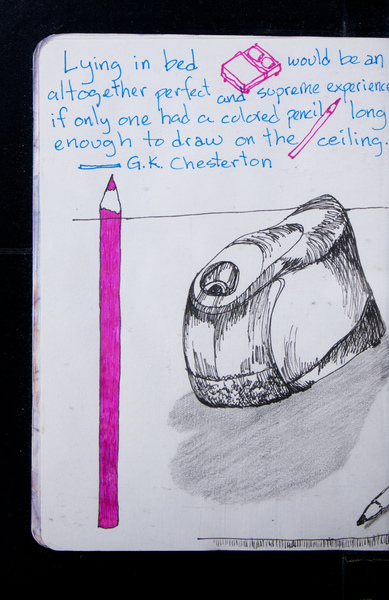 Lying in bed would be an
altogether perfect and supreme experience
if only one had a colored pencil long
enough to draw on the ceiling.
— G.K. Chesterton